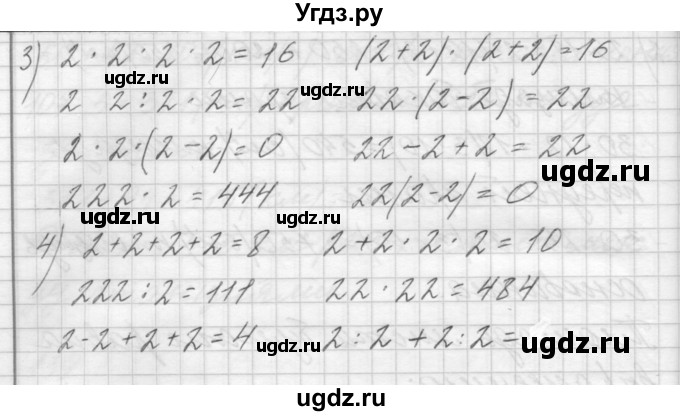 Угдз.ру
3) 2 · 2 · 2 · 2 = 16 (2+2) · (2+2) = 16
ugdz.ru ugdz.ru
2 2 : 2 · 2 = 22 22 · (2-2) = 22
2 · 2 · (2-2) = 0 22 - 2 + 2 = 22
ugdz.ru
222 · 2 = 444 22(2-2) = 0
ugdz.ru ugdz.ru
4) 2+2+2+2 = 8 2+2 · 2 · 2 = 10
222 : 2 = 111 22 · 22 = 484
2-2+2+2 = 4 2 : 2 + 2 : 2 =
ugdz.ru ugdz.ru
ugdz.ru